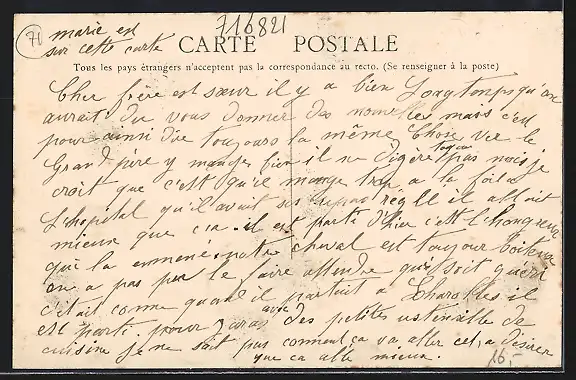 71 marie est
sur cette carte
716821
CARTE POSTALE
Tous les pays étrangers n'acceptent pas la correspondance au recto. (Se renseigner à la poste)
Cher frère est sœur il y a bien Longtemps qu'on
aurait du vous donner des nouvelles mais c'est
pour ainsi dire toujours la même Chose vec le
Grand père y mange bien il ne digère pas mais je
croit que c'est qu'il mange trop a la foi a
L'hopital qu'il avait ses repas réglé il allait
mieux que ca. il est parti d'hier c'est l'hongreur
qui la emmené. notre cheval est toujour boiteux
on a pas pu le faire attendre qu'il soit guéri
c'était comme quand il partait a Charolles il
est parti pour avec des petites ustensille de
cuisine je ne sait pas comment ca va aller cel, a désirer
que ca aille mieux.
16-